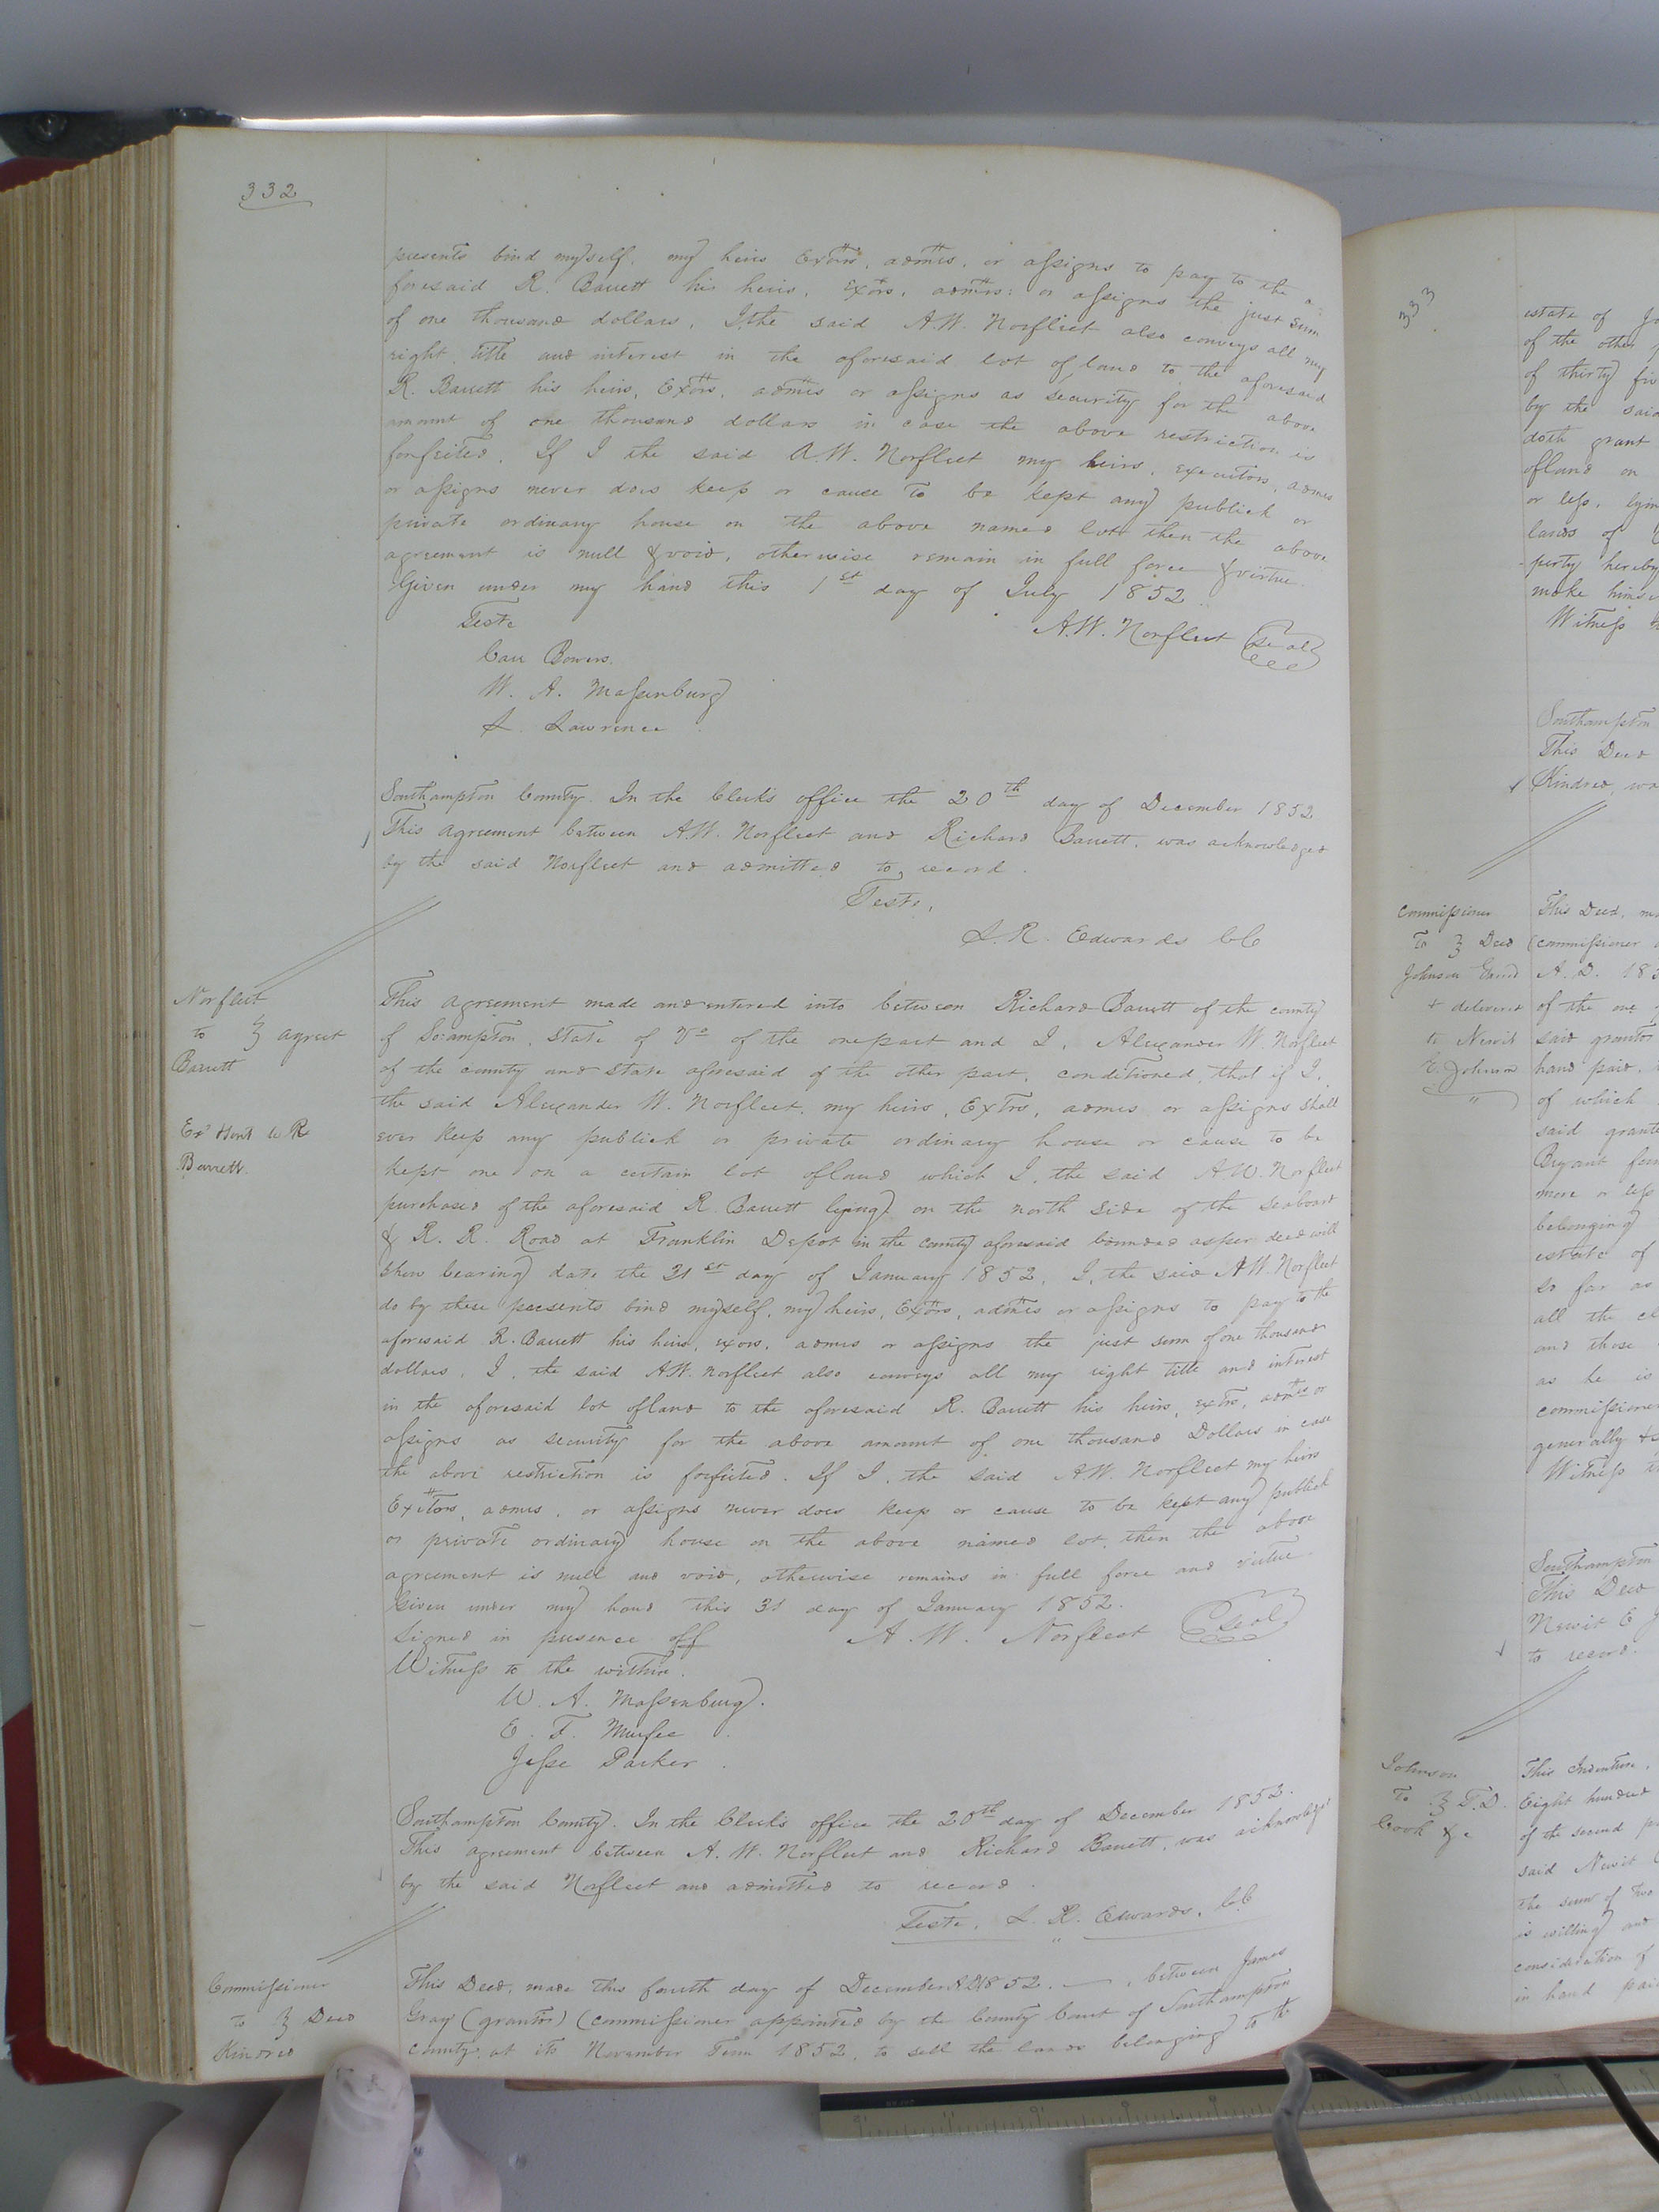 332
presents bind myself, my heirs Extrs, admrs, or assigns to pay to the a-
foresaid R. Barrett his heirs, Extrs, admrs: or assigns the just sum
of one thousand dollars, I, the said A.W. Norfleet also conveys all my
right, title and interest in the aforesaid lot of land to the aforesaid
R. Barrett his heirs, Extrs, admrs or assigns as security for the above
amount of one thousand dollars in case the above restriction is
forfeited. If I the said A.W. Norfleet my heirs, executors, admrs
or assigns never does keep or cause to be kept any publick or
private ordinary house on the above named lot then the above
agreement is null & void, otherwise remain in full force & virtue.
Given under my hand this 1st day of July 1852
Teste
A.W. Norfleet (seal)
Carr Bowers.
W. A. Massenburg
L. Lawrence
Southampton County. In the Clerk's office the 20th day of December 1852
This agreement between A.W. Norfleet and Richard Barrett, was acknowledged
by the said Norfleet and admitted to record.
Teste,
L.R. Edwards CC
Norfleet
to } agreet
Barrett
Exd Hent W R
Barrett.
This agreement made and entered into between Richard Barrett of the county
of So:ampton, State of Va of the one part and I, Alexander W. Norfleet
of the county and state aforesaid of the other part, conditioned, that if I,
the said Alexander W. Norfleet, my heirs, Extrs, admrs or assigns shall
ever keep any publick or private ordinary house or cause to be
kept one on a certain lot of land which I, the said A.W. Norfleet
purchased of the aforesaid R. Barrett lying on the north side of the Seaboard
& R. R. Road at Franklin Depot in the county aforesaid bounded as per deed will
shew bearing date the 31st day of January 1852, I, the said A.W. Norfleet
do by these presents bind myself, my heirs, Extrs, admrs or assigns to pay to the
aforesaid R. Barrett his heirs, exors, admrs or assigns the just sum of one thousand
dollars, I, the said A.W. Norfleet also conveys all my right title and interest
in the aforesaid lot of land to the aforesaid R. Barrett his heirs, extrs, admrs or
assigns as security for the above amount of one thousand Dollars in case
the above restriction is forfeited. If I, the said A.W. Norfleet my heirs
Exitors, admrs, or assigns never does keep or cause to be kept any publick
or private ordinary house on the above named lot, then the above
agreement is null and void, otherwise remains in full force and virtue
Given under my hand this 31 day of January 1852.
Signed in presence off
A. W. Norfleet (seal)
Witness to the within.
W. A. Massenburg.
E. F. Murfee
Jesse Parker
Southampton County. In the Clerk's office the 20th day of December 1852.
This agreement between A. W. Norfleet and Richard Barrett, was acknowledged
by the said Norfleet and admitted to record.
Teste, L. R. Edwards, CC
Commissioner
to } Deed
Kindred
This Deed, made this fourth day of December AD 1852. — , between James
Gray (grantor) (commissioner appointed by the County Court of Southampton
county, at its November Term 1852, to sell the lands belonging to the
333
estate of Jo
of the other p
of thirty fiv
by the said
doth grant
of land on
or less, lyin
lands of
perty hereby
make himse
Witness
Southampton
This Deed
Kindred, wa
Commissioner
To } Deed
Johnson
+ delivered
to Newit
E. Johnson
This Deed, ma
(commissioner
A. D. 185
of the one
said grantor
hand paid,
of which
said grante
Bryant
more or less
belonging
estate of
so far as
all the cl
and those
as he is
commissioner
generally
Witness
Southampton
This Deed
Newit E J
to record.
Johnson
To } T.D.
Cook &c
This Indenture,
Eight hundred
of the second pa
said Newit
the sum of two
is willing and
consideration of
in hand paid